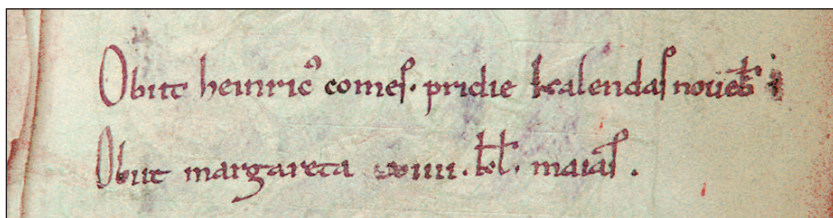 Obiit heinricꝰ comeſ. pridie kalendaſ noueb̄
Obiit margareta xviiii. kl̄. maiaſ.